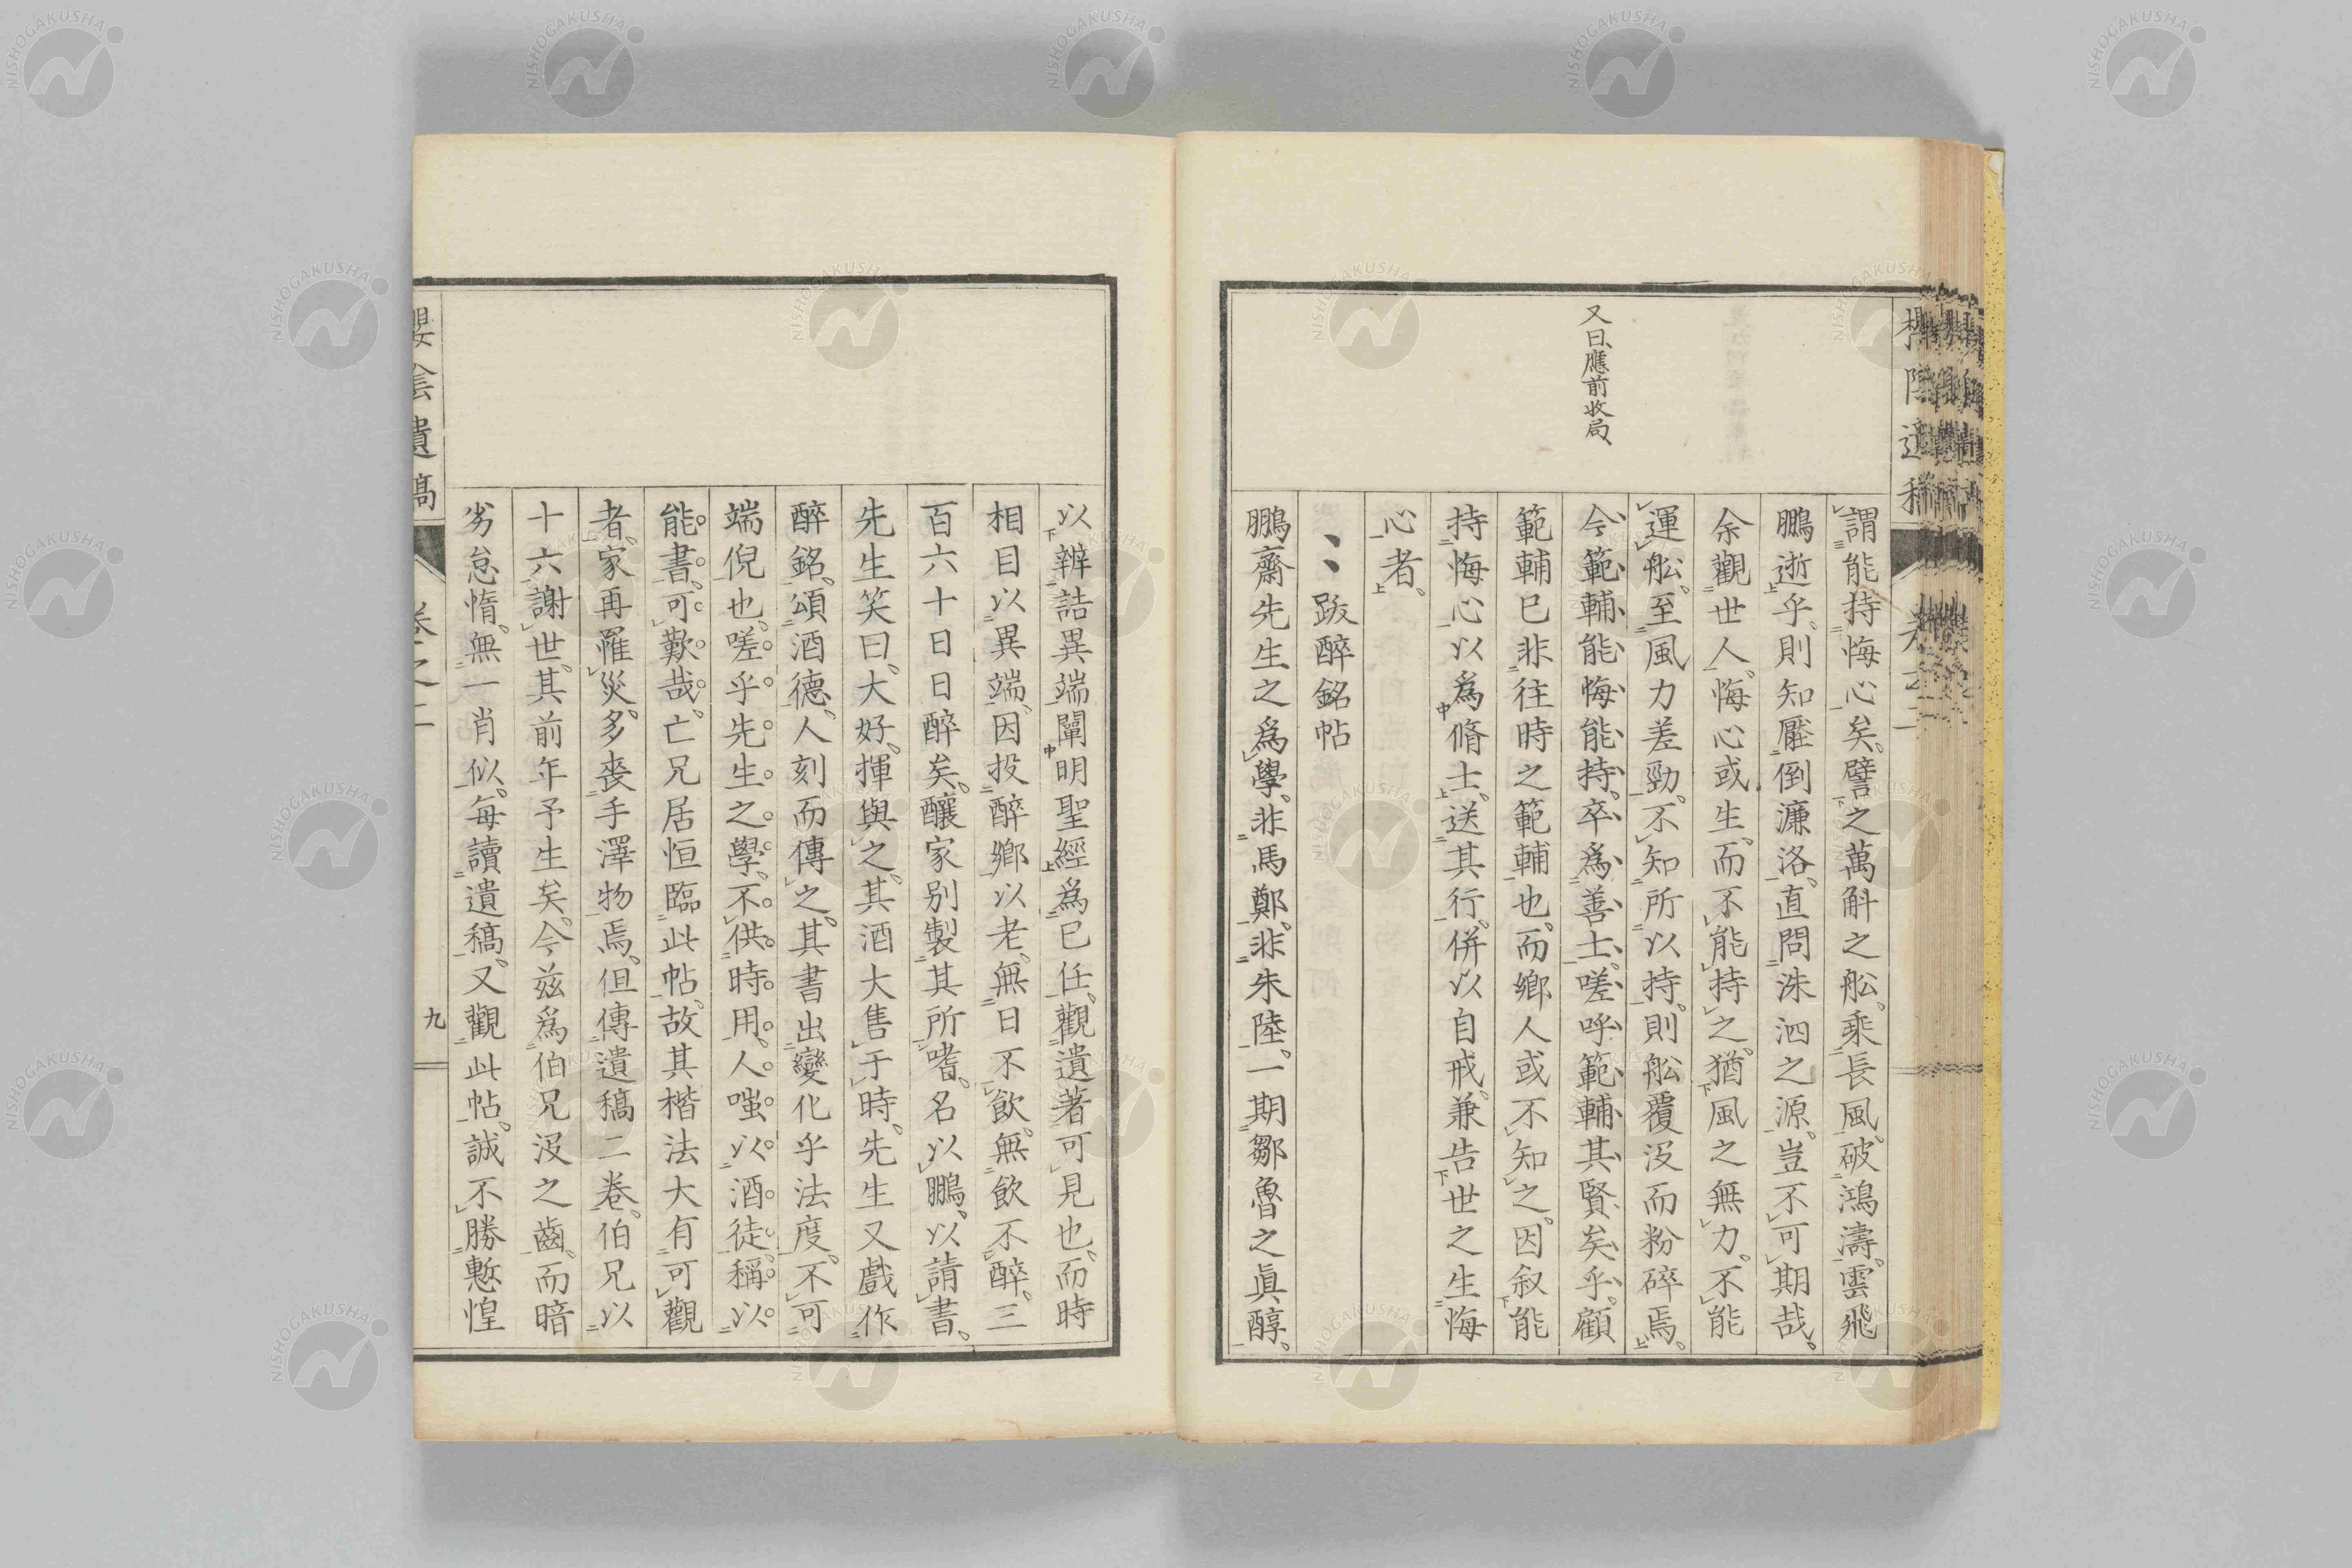 謂能持悔心矣。譬之萬斛之舩。乘長風。破鴻濤。雲飛
鵬逝乎。則知壓倒濂洛。直問洙泗之源。豈不可期哉。
余觀世人。悔心或生。而不能持之。猶風之無力。不能
運舩。至風力差勁。不知所以持。則舩覆沒而粉碎焉。
又曰、應前收局、
今範輔能悔能持。卒爲善士。嗟呼範輔其賢矣乎。顧
範輔已非往時之範輔也。而鄉人或不知之。因叙能
持悔心以爲脩士。送其行。併以自戒。兼告世之生悔
心者。
跋醉銘帖
鵬齋先生之爲學。非馬鄭。非朱陸。一期鄒魯之眞醇。
以辨詰異端闡明聖經爲已任。觀遺著可見也。而時
相目以異端。因投醉鄉以老。無日不飲。無飲不醉。三
百六十日日醉矣。釀家別製其所嗜。名以鵬。以請書。
先生笑曰。大好。揮與之。其酒大售于時。先生又戲作
醉銘。頌酒德。人刻而傳之。其書出變化乎法度。不可
端倪也。嗟乎先生之學。不供時用。人嗤以酒徒。稱以
能書。可歎哉。亡兄居恒臨此帖。故其楷法大有可觀
者。家再罹災。多喪手澤物焉。但傳遺稿二卷。伯兄以
十六謝世。其前年予生矣。今茲爲伯兄沒之齒。而暗
劣怠惰。無一肖似。每讀遺稿。又觀此帖。誠不勝慙惶
櫻陰遺稿
卷之二
九